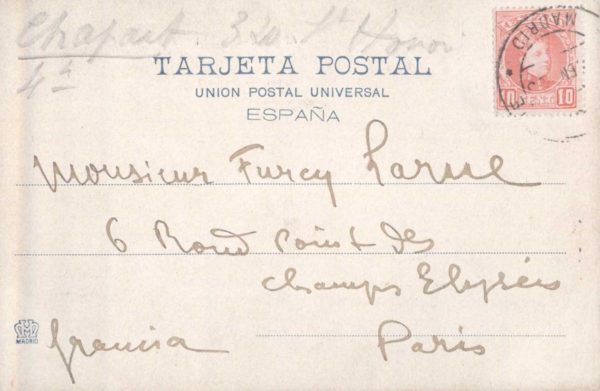 Chapart 3 St Honor
4t
TARJETA POSTAL
UNION POSTAL UNIVERSAL
ESPAÑA
MADRID
10 CENT. 10
Monsieur Furcy Larue
6 Rond Point des
Champs Elysées
Francia Paris
MADRID